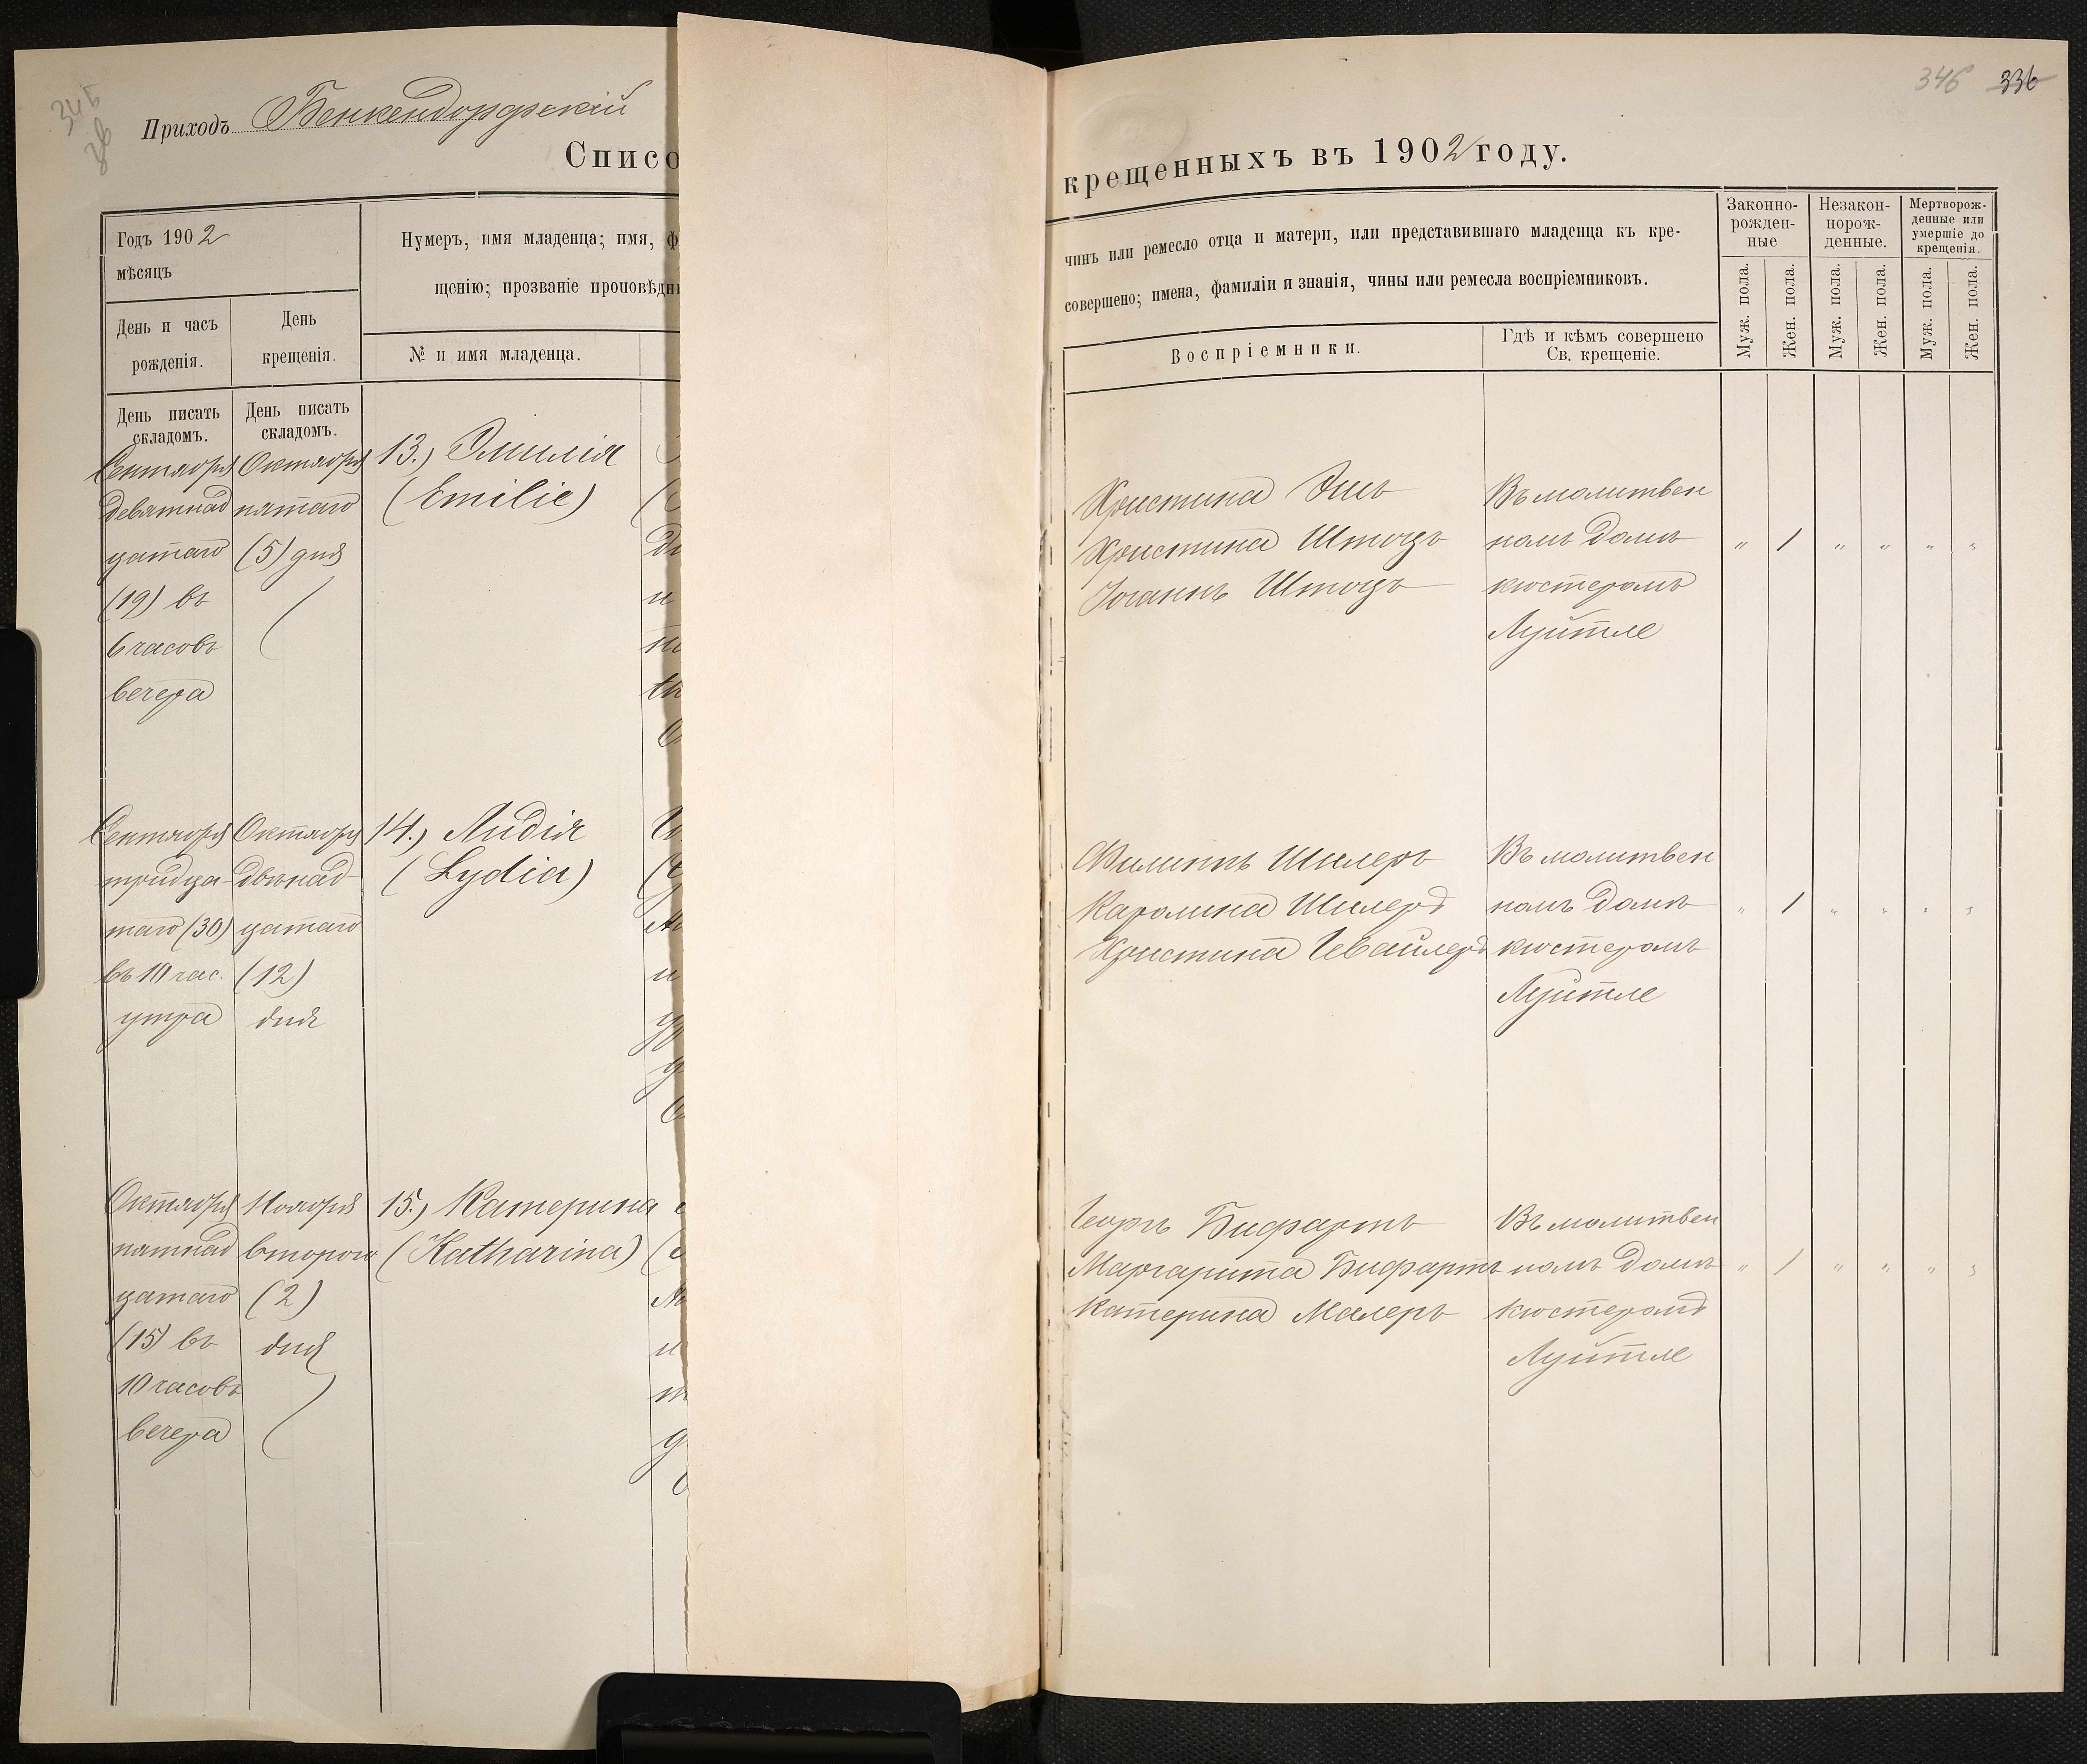 346 336
Приходъ Бенкендорфскій
Списо
крещенныхъ въ 1902 году.
Годъ 1902
мѣсяцъ
Нумеръ, имя младенца; имя, ф
щенію; прозваніе проповѣдн
День и часъ
рожденія.
День
крещенія.
№ и имя младенца.
чинъ или ремесло отца и матери, или представившаго младенца къ кре-
совершено; имена, фамиліи и знанія, чины или ремесла воспріемниковъ.
Воспріемники.
Гдѣ и кѣмъ совершено
Св. крещеніе.
Законно-
рожден-
ные
Незакон-
норож-
денные.
Мертворож-
денные или
умершіе до
крещенія.
Муж. пола.
Жен. пола.
Муж. пола.
Жен. пола.
Муж. пола.
Жен. пола.
День писать
складомъ.
День писать
складомъ.
Сентября
девятнад
цатаго
(19) въ
6 часовъ
вечера
Октября
пятаго
(5) дня
13.) Эмилія
(Emilie)
Христина
Христина Штоцъ
Іоганнъ Штоцъ
Въ молитвен
номъ домѣ
кюстеромъ
Луйтле
" 1 " " " "
Сентября
тридца-
таго (30)
въ 10 час.
утра
Октября
двѣнад-
цатаго
(12)
дня
14.) Лидія
(Lydia)
Филиппъ Шилеръ
Каролина Шилеръ
Христина
Въ молитвен
номъ домѣ
кюстеромъ
Луйтле
" 1 " " " "
Октября
пятнад
цатаго
(15) въ
10 часовъ
вечера
Ноября
второго
(2)
дня
15.) Катерина
(Katharina)
Георгъ Бифартъ
Маргарита Бифартъ
Катерина Малеръ
Въ молитвен
номъ домѣ
кюстеромъ
Луйтле
" 1 " " " "